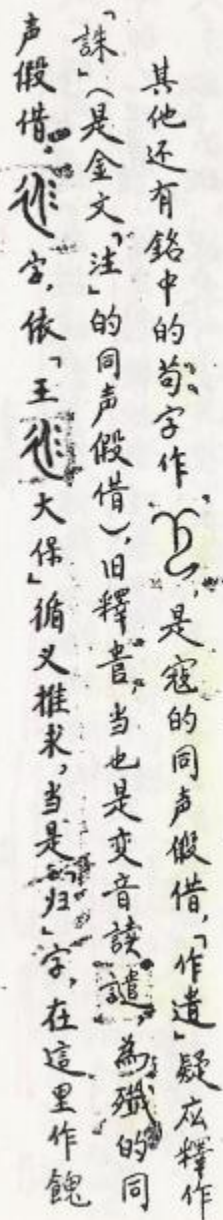 其他还有銘中的苟字作，是寇的同声假借，「作遺」疑应釋作
「誅」（是金文「泩」的同声假借），旧釋眚，当也是变音讀譴，為殲的同
声假借。字，依「王大保」循义推求，当是「归」字，在這里作餽